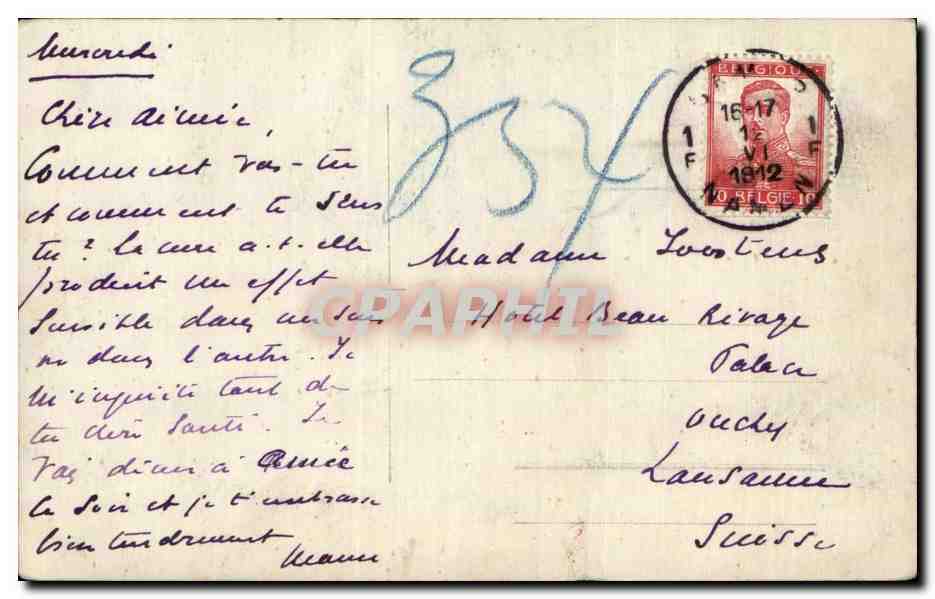 Mercredi
Chère Aimée,
Comment vas-tu
et comment te sens
tu? La cure a-t-elle
produit un effet
sensible dans un sens
ou dans l'autre. Je
m'inquiète tant de
ta chère santé. Je
vais dîner à
ce soir et je t'embrasse
bien tendrement
357
BELGIQUE
16-17
12
VI
1912
1
F
1
F
10 BELGIË 10
Madame Joostens
Hôtel Beau Rivage
Palace
Ouchy
Lausanne
Suisse
CPAPHIL